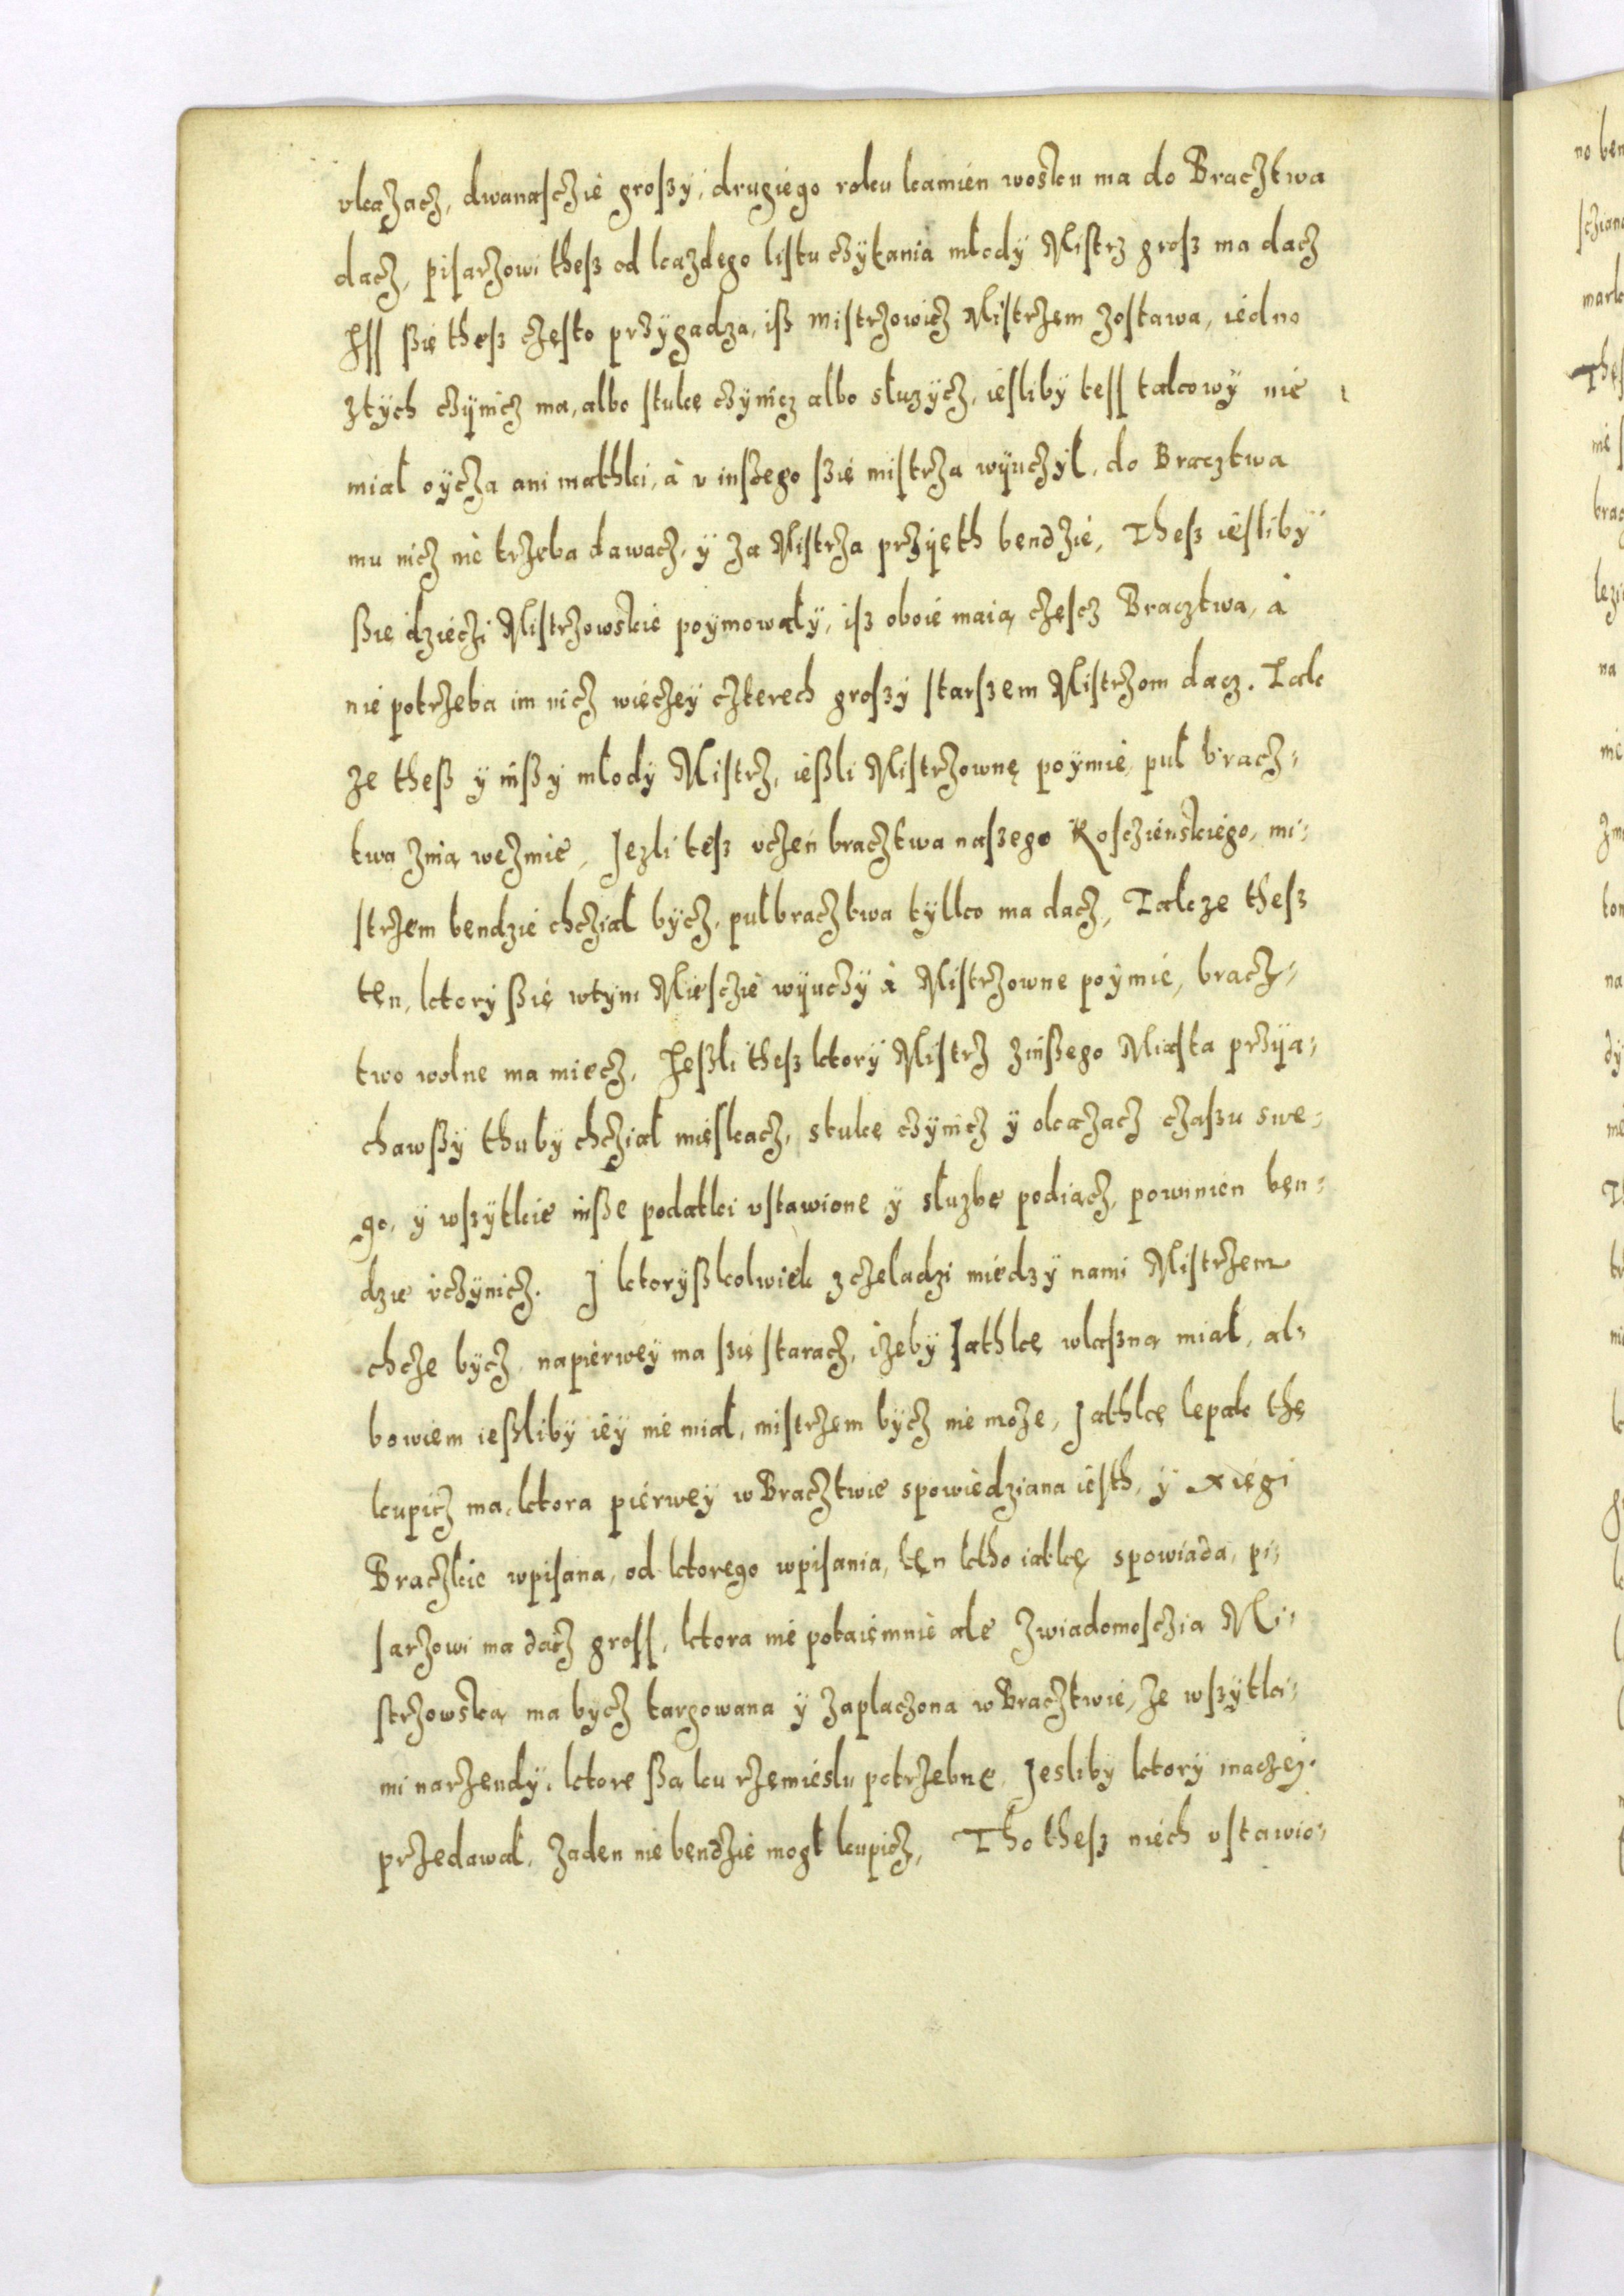 vkazacz, dwanasczie groszy, drugiego roku kamien wosku ma do Bracztwa
dacz, pisarzowi thesz od kazdego listu czytania młody Mistrz grosz ma dacz
Iss szię thesz często przygadza, isz mistrzowicz Mistrzem zostawa, iedno
ztych czynicz ma, albo stukę czynicz albo słuzycz, iesliby tess takowy nie
miał oycza ani mathki, a v inszego szie mistrza wyuczył, do Bracztwa
mu nicz nie trzeba dawacz, y za Mistrza przyięth bendzie, Thesz iesliby
szie dzieczi Mistrzowskie poymowały, isz oboie maią częscz Bracztwa, a
nie potrzeba im nicz więczey czterech groszy starszem Mistrzom dacz. Tak
ze thesz y inszy młody Mistrz, ieszli Mistrzownę poymie, puł bracz-
twa znią wezmie, Jezli tesz vczen bracztwa naszego Kosczienskiego, mi-
strzem bendzie chcział bycz, pułbracztwa tylko ma dacz, Takze thesz
ten, ktory szię wtym Miesczie wyuczy a Mistrzowne poymie, bracz-
two wolne ma miecz, Jeszli thesz ktory Mistrz zinszego Miasta przyia-
chawszy thuby chcział mieskacz, stukę czynicz y okazacz czaszu swe-
go, y wszytkie insze podatki vstawione y służbę podiącz, powinien ben-
dzie vczynicz. J ktoryszkolwiek zczeladzi miedzy nami Mistrzem
chcze bycz, napierwey ma szię staracz, iżeby Jathkę własną miał, al-
bowiem ieszliby iey nie miał, mistrzem bycz nie moze, Jathkę lepak thę
kupicz ma, ktora pierwey w Bracztwie spowiedziana iesth, y xięgi
Braczkie wpisana, od ktorego wpisania, ten ktho iatkę spowiada, pi-
sarzowi ma dacz gross, ktora nie potaiemnie ale zwiadomosczią Mi-
strzowską ma bycz targowana y zapłaczona w Bracztwie, ze wszytki-
mi narzendy, ktore szą ku rzemiesłu potrzebne, Jesliby ktory inaczey
przedawał, zaden nie bendzie mogł kupicz, Tho thesz niech vstawio-